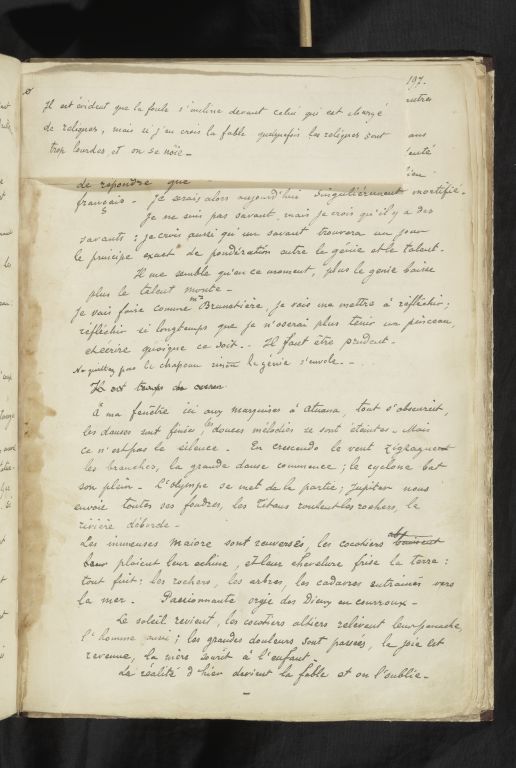 197.
Il est évident que la foule s'incline devant celui qui est chargé
de reliques, mais si j'en crois la fable quelquefois les reliques sont
trop lourdes et on se noïe_
de repondre que
français - je serais alors aujourd'hui singulièrement mortifié_
Je ne suis pas savant, mais je crois qu'il y a des
savants : je crois aussi qu'un savant trouvera un jour
le principe exact de pondération entre le génie et le talent.
Il me semble qu'en ce moment, plus le genie baisse
plus le talent monte_
Je vais faire comme Mr Brunetière, je vais me mettre à réfléchir;
réfléchir si longtemps que je n'oserai plus tenir un pinceau,
et écrire quoique ce soit._ Il faut être prudent_
Ne quittez pas le chapeau sinon le génie s'envole._
Il est temps de
A ma fenêtre ici aux marquises à Atuana, tout s'obscurcit,
les danses sont finies, les douces mélodies se sont éteintes_ Mais
ce n'est pas le silence_ En crescendo le vent zigzague
les branches, la grande danse commence; le cyclone bat
son plein_ L'olympe se met de la partie; Jupiter nous
envoie toutes ses foudres, les Titans roulent les rochers, la
rivière déborde_
Les immenses maiore sont renversés, les cocotiers
ploient leur echine, et leur chevelure frise la terre:
tout fuit: les rochers, les arbres, les cadavres entrainés vers
la mer_ Passionnante orgie des Dieux en courroux_
Le soleil revient, les cocotiers altiers relèvent leur panache,
l'homme aussi; les grandes douleurs sont passées, la joie est
revenue, la mère sourit à l'enfant_
La réalité d'hier devient la fable et on l'oublie_